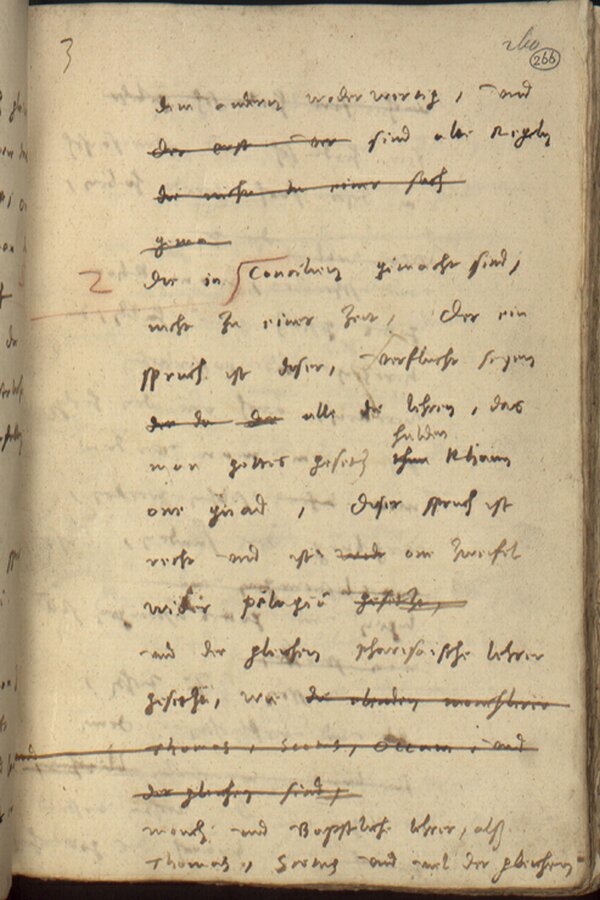 3
260
266
dem andern weder wertig, und
der erst – der sind alte Regeln
die nicht in einer sach
2 die in Concilien gemacht sind,
nicht zu einer Zeit, Der ein
spruch ist diser, verflucht seyen
der da der alle die lehren, das
halden
man gottes gesetz ihm khann
one gnad, Diser spruch ist
recht und ist on zweifel
wider pelagiū
und der gleichen pharisaische lehrer
gesetzt, wie
Thomas, Scotus, Occam, und
der gleichen sind,
monch und Bapstliche lehrer, alß
Thomas, Scotus und viel der gleichen